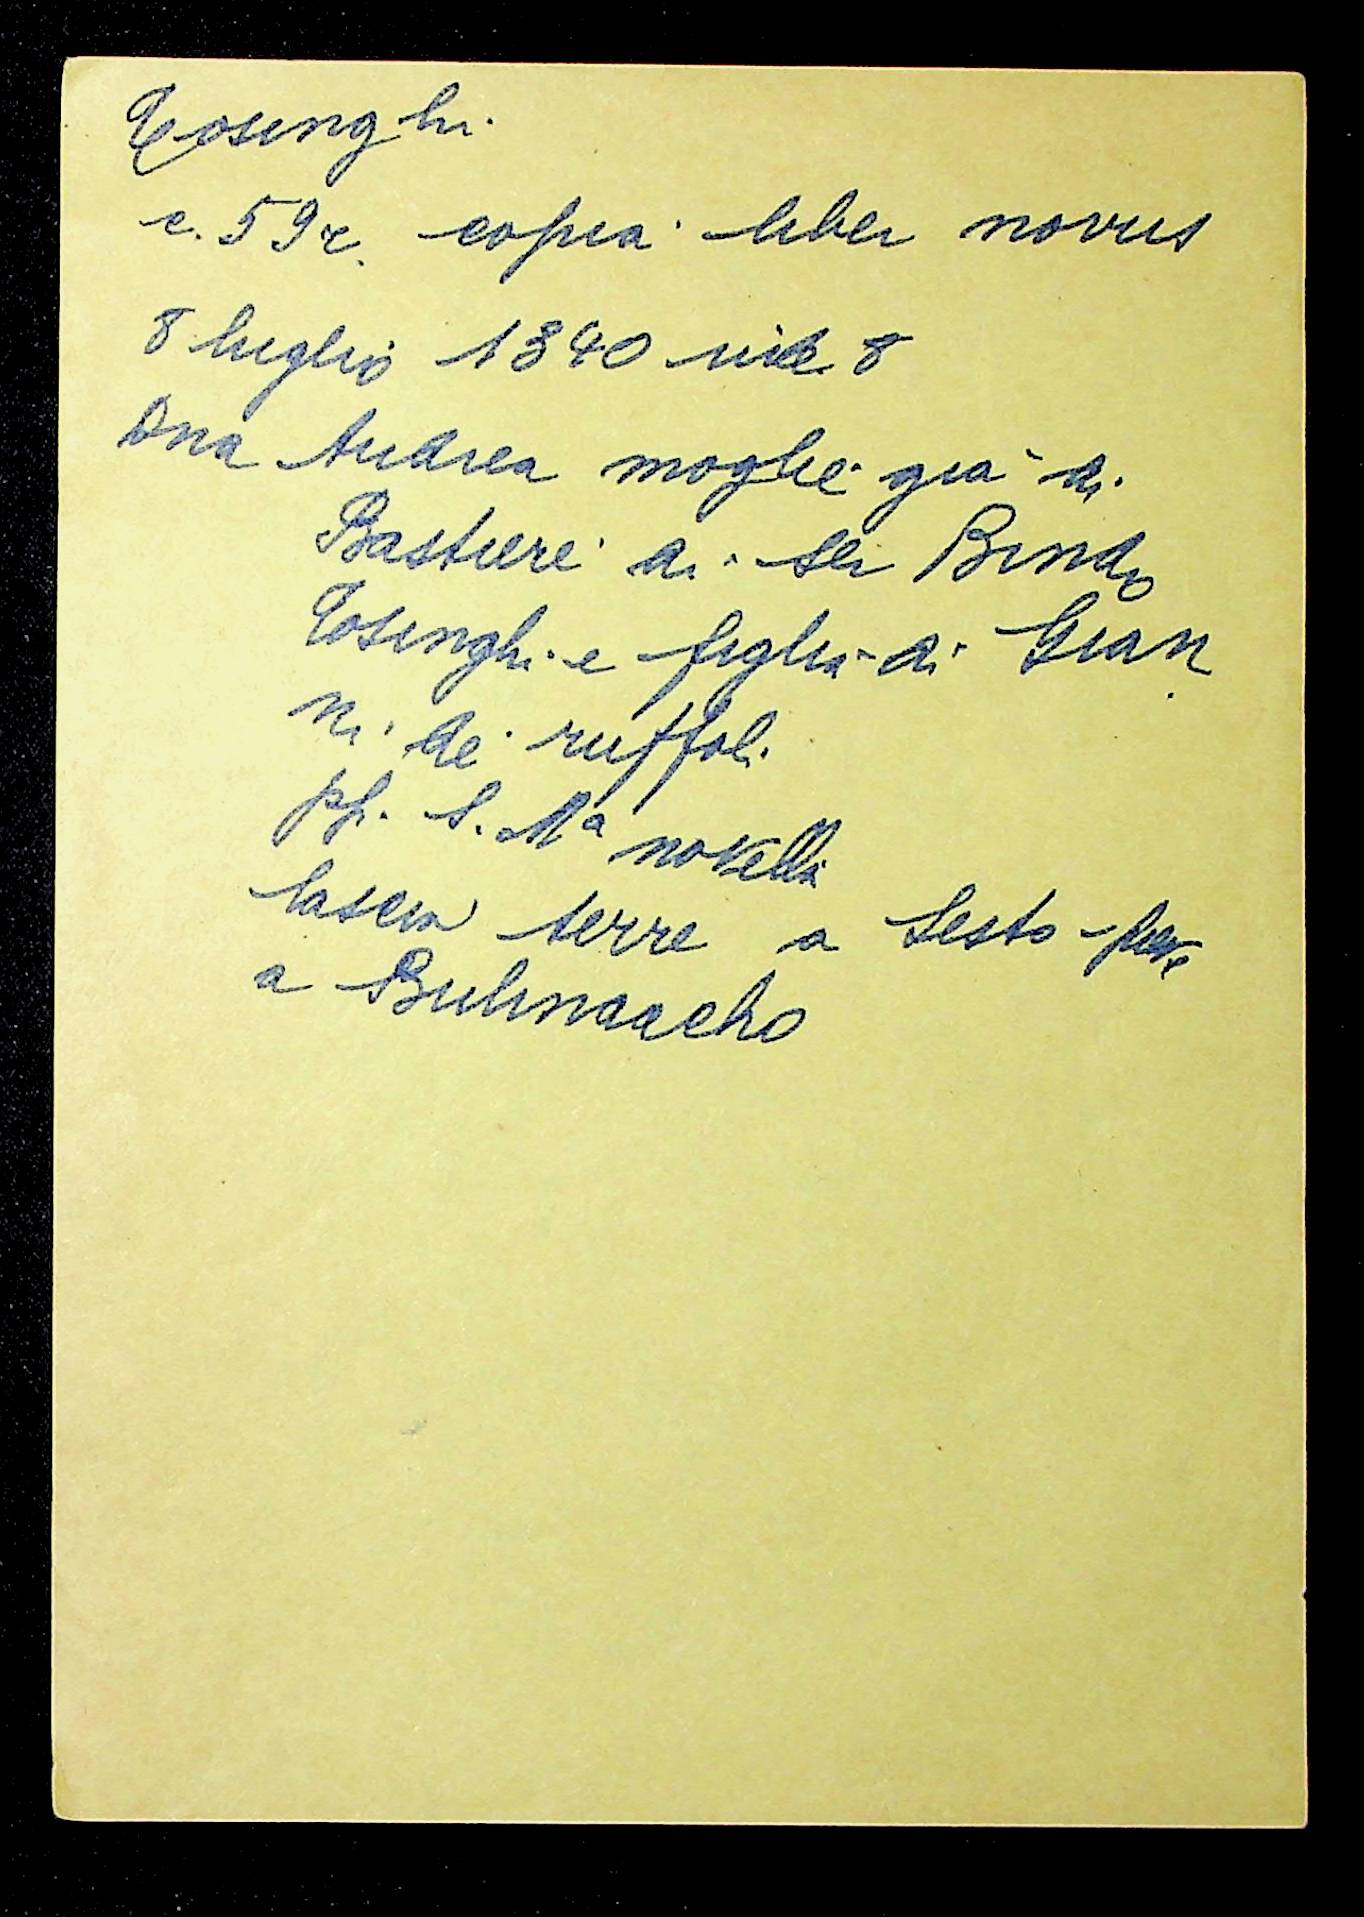 Tosinghi
c. 59r. copia liber novus
8 luglio 1340 ind. 8
Dna Andrea moglie già di
Bastiere di ser Bindo
Tosinghi e figlia di Gian
ni de ruffoli
pp. S. Mª novella
lascia terre a Sesto
a Bulinaccho